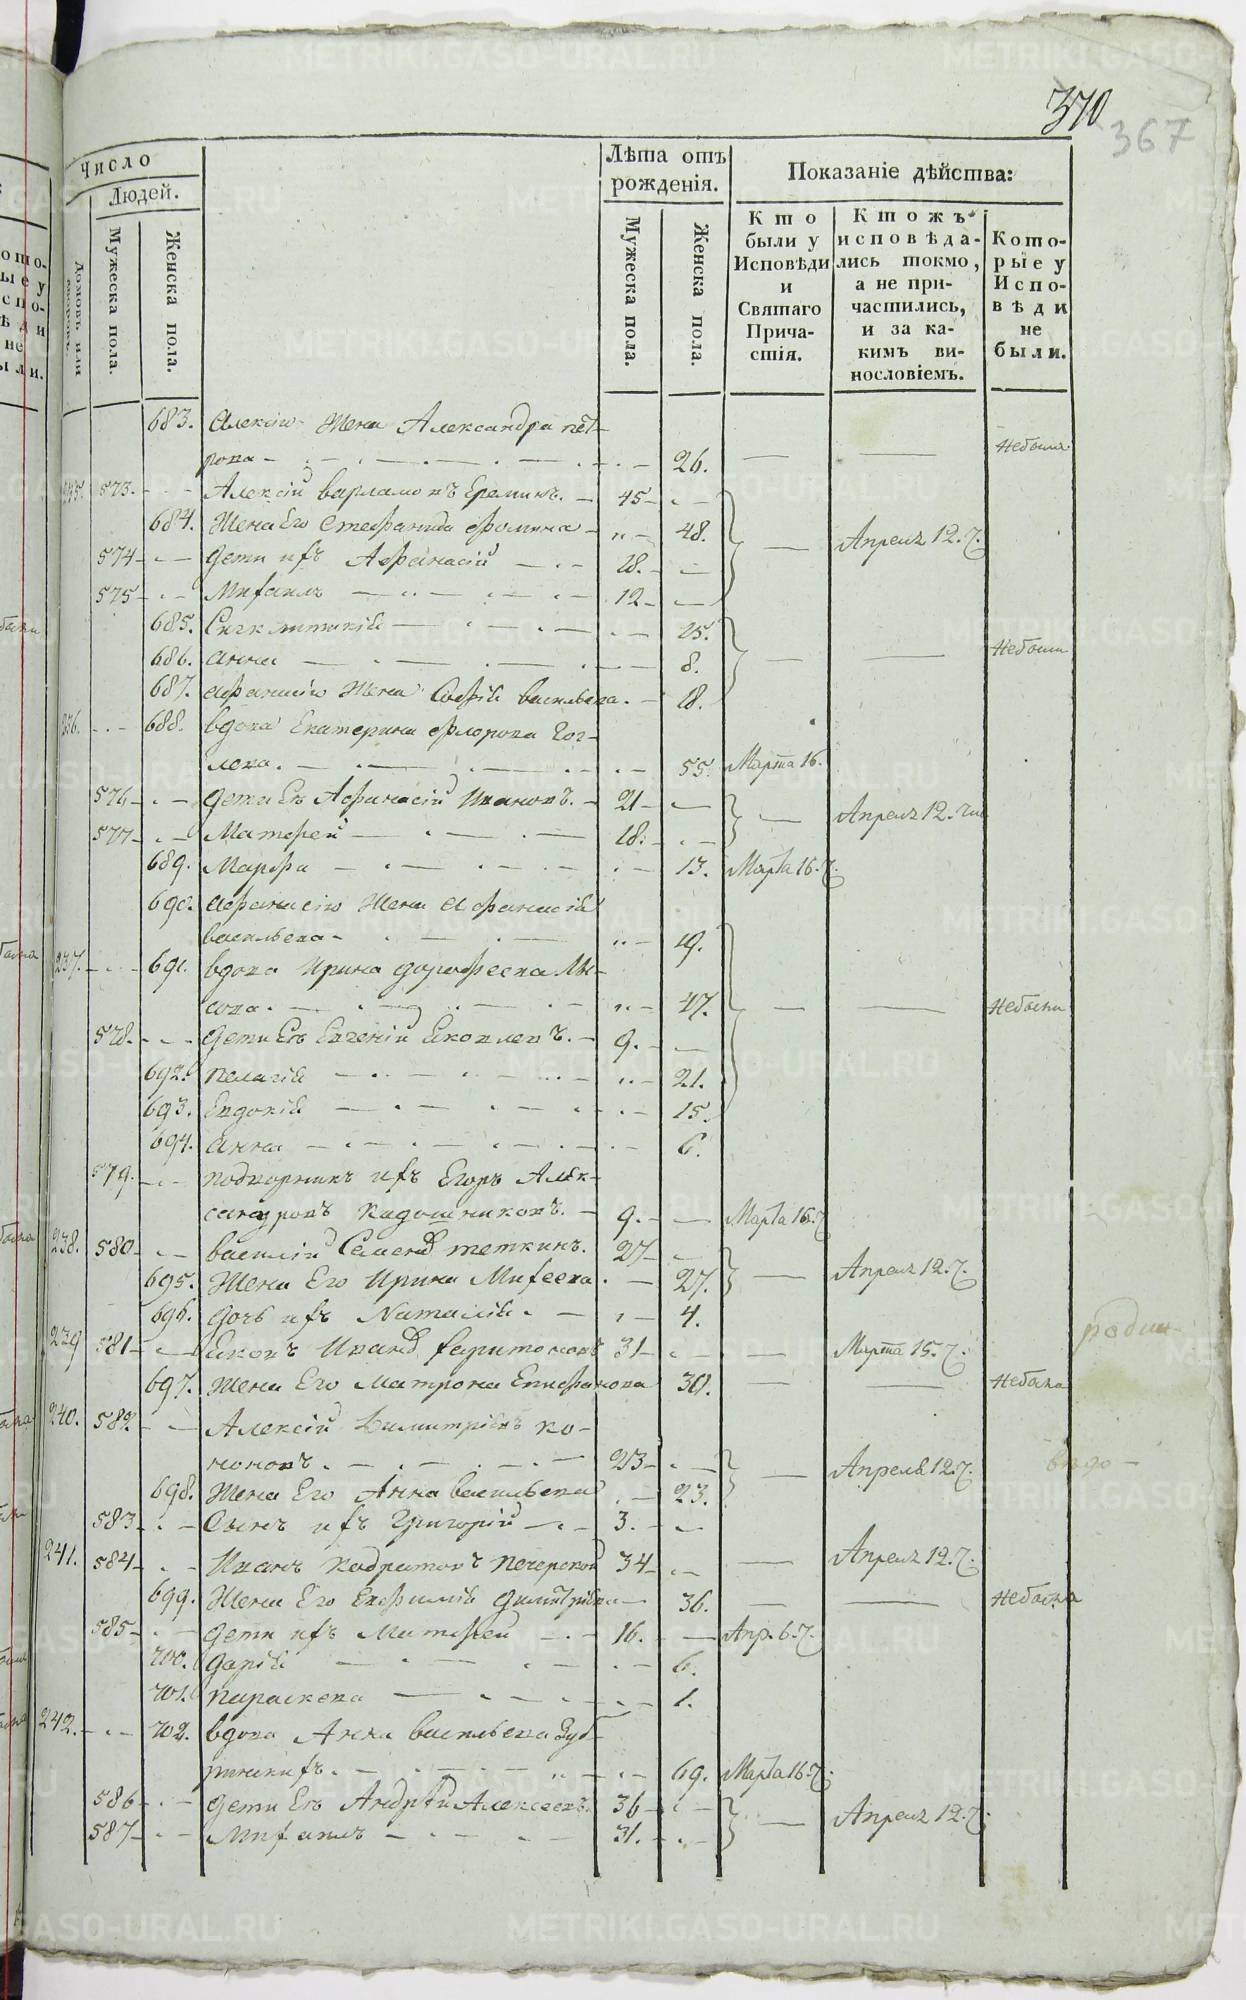 370
367
Число
Людей.
Лѣта отъ
рожденія.
Показаніе дѣйства:
Домовъ или
Мужеска пола.
Женска пола.
Мужеска пола.
Женска пола.
Кто
были у
Исповѣди
и
Святаго
Прича-
стія.
Ктожъ
исповѣда-
лись токмо,
а не при-
частились,
и за ка-
кимъ ви-
нословіемъ.
Кото-
рые у
Испо-
вѣди
не
были.
683. Алексіω Жена Александра пет-
рова 26. Небыла
235. 573. Алексій варламовъ Ереминъ. 45
684. Жена Его Стефанида фомина 48. Апреля 12. ч.
574 дети ихъ Афанасій 18.
575 Михаилъ 12
685. Сигклитикія 15.
686. Анна 8. Небыли
687. Афанасію Жена Софія васильева. 18.
236. 688. вдова Екатерина флорова Гог-
лева. 55. Марта 16.
576 дети Ея Афанасій Ивановъ. 21 Апреля 12. чи
577 Матфей 18.
689. Марфа 13. Марта 16. ч.
690. Афанасію Жена Афанасія
васильева 19.
237. 691. вдова Ирина дорофеева Лы-
сова. 47. Небыли
578. дети Ея Евгеній Яковлевъ. 9.
692. Пелагія 21.
693. Евдокія 15.
694. Анна 6.
579. подворникъ ихъ Егоръ Алек-
сандровъ Кадошниковъ. 9. Марта 16. ч
238. 580 василій Семенов теткинъ. 27
695. Жена Его Ирина Михеева. 27. Апреля 12. ч.
696. дочь ихъ Наталія 4.
239 581 Яковъ Иванов харитоновъ 31 Марта 15. ч.
697. Жена Его Матрона Епифанова 30. Небыла
родин
240. 582. Алексій Димитріевъ ко-
нономъ. 23 Апреля 12. ч.
вндо
698. Жена Его Анна васильева 23.
583 Сынъ ихъ Григорій 3.
241. 584 Иванъ Кодратовъ печерской 34 Апреля 12. ч.
699. Жена Его Евфимія димитріева 36. Небыла
585 дети ихъ Матфей 16. Апр. 6. ч.
700. Дарія 6.
701. Параскева 1.
242. 702. вдова Анна васильева Зуб-
ринскихъ. 69. Марта 16. ч.
586 дети Ея Андрей Алексеевъ. 36
587 Михаилъ 31. Апреля 12. ч.